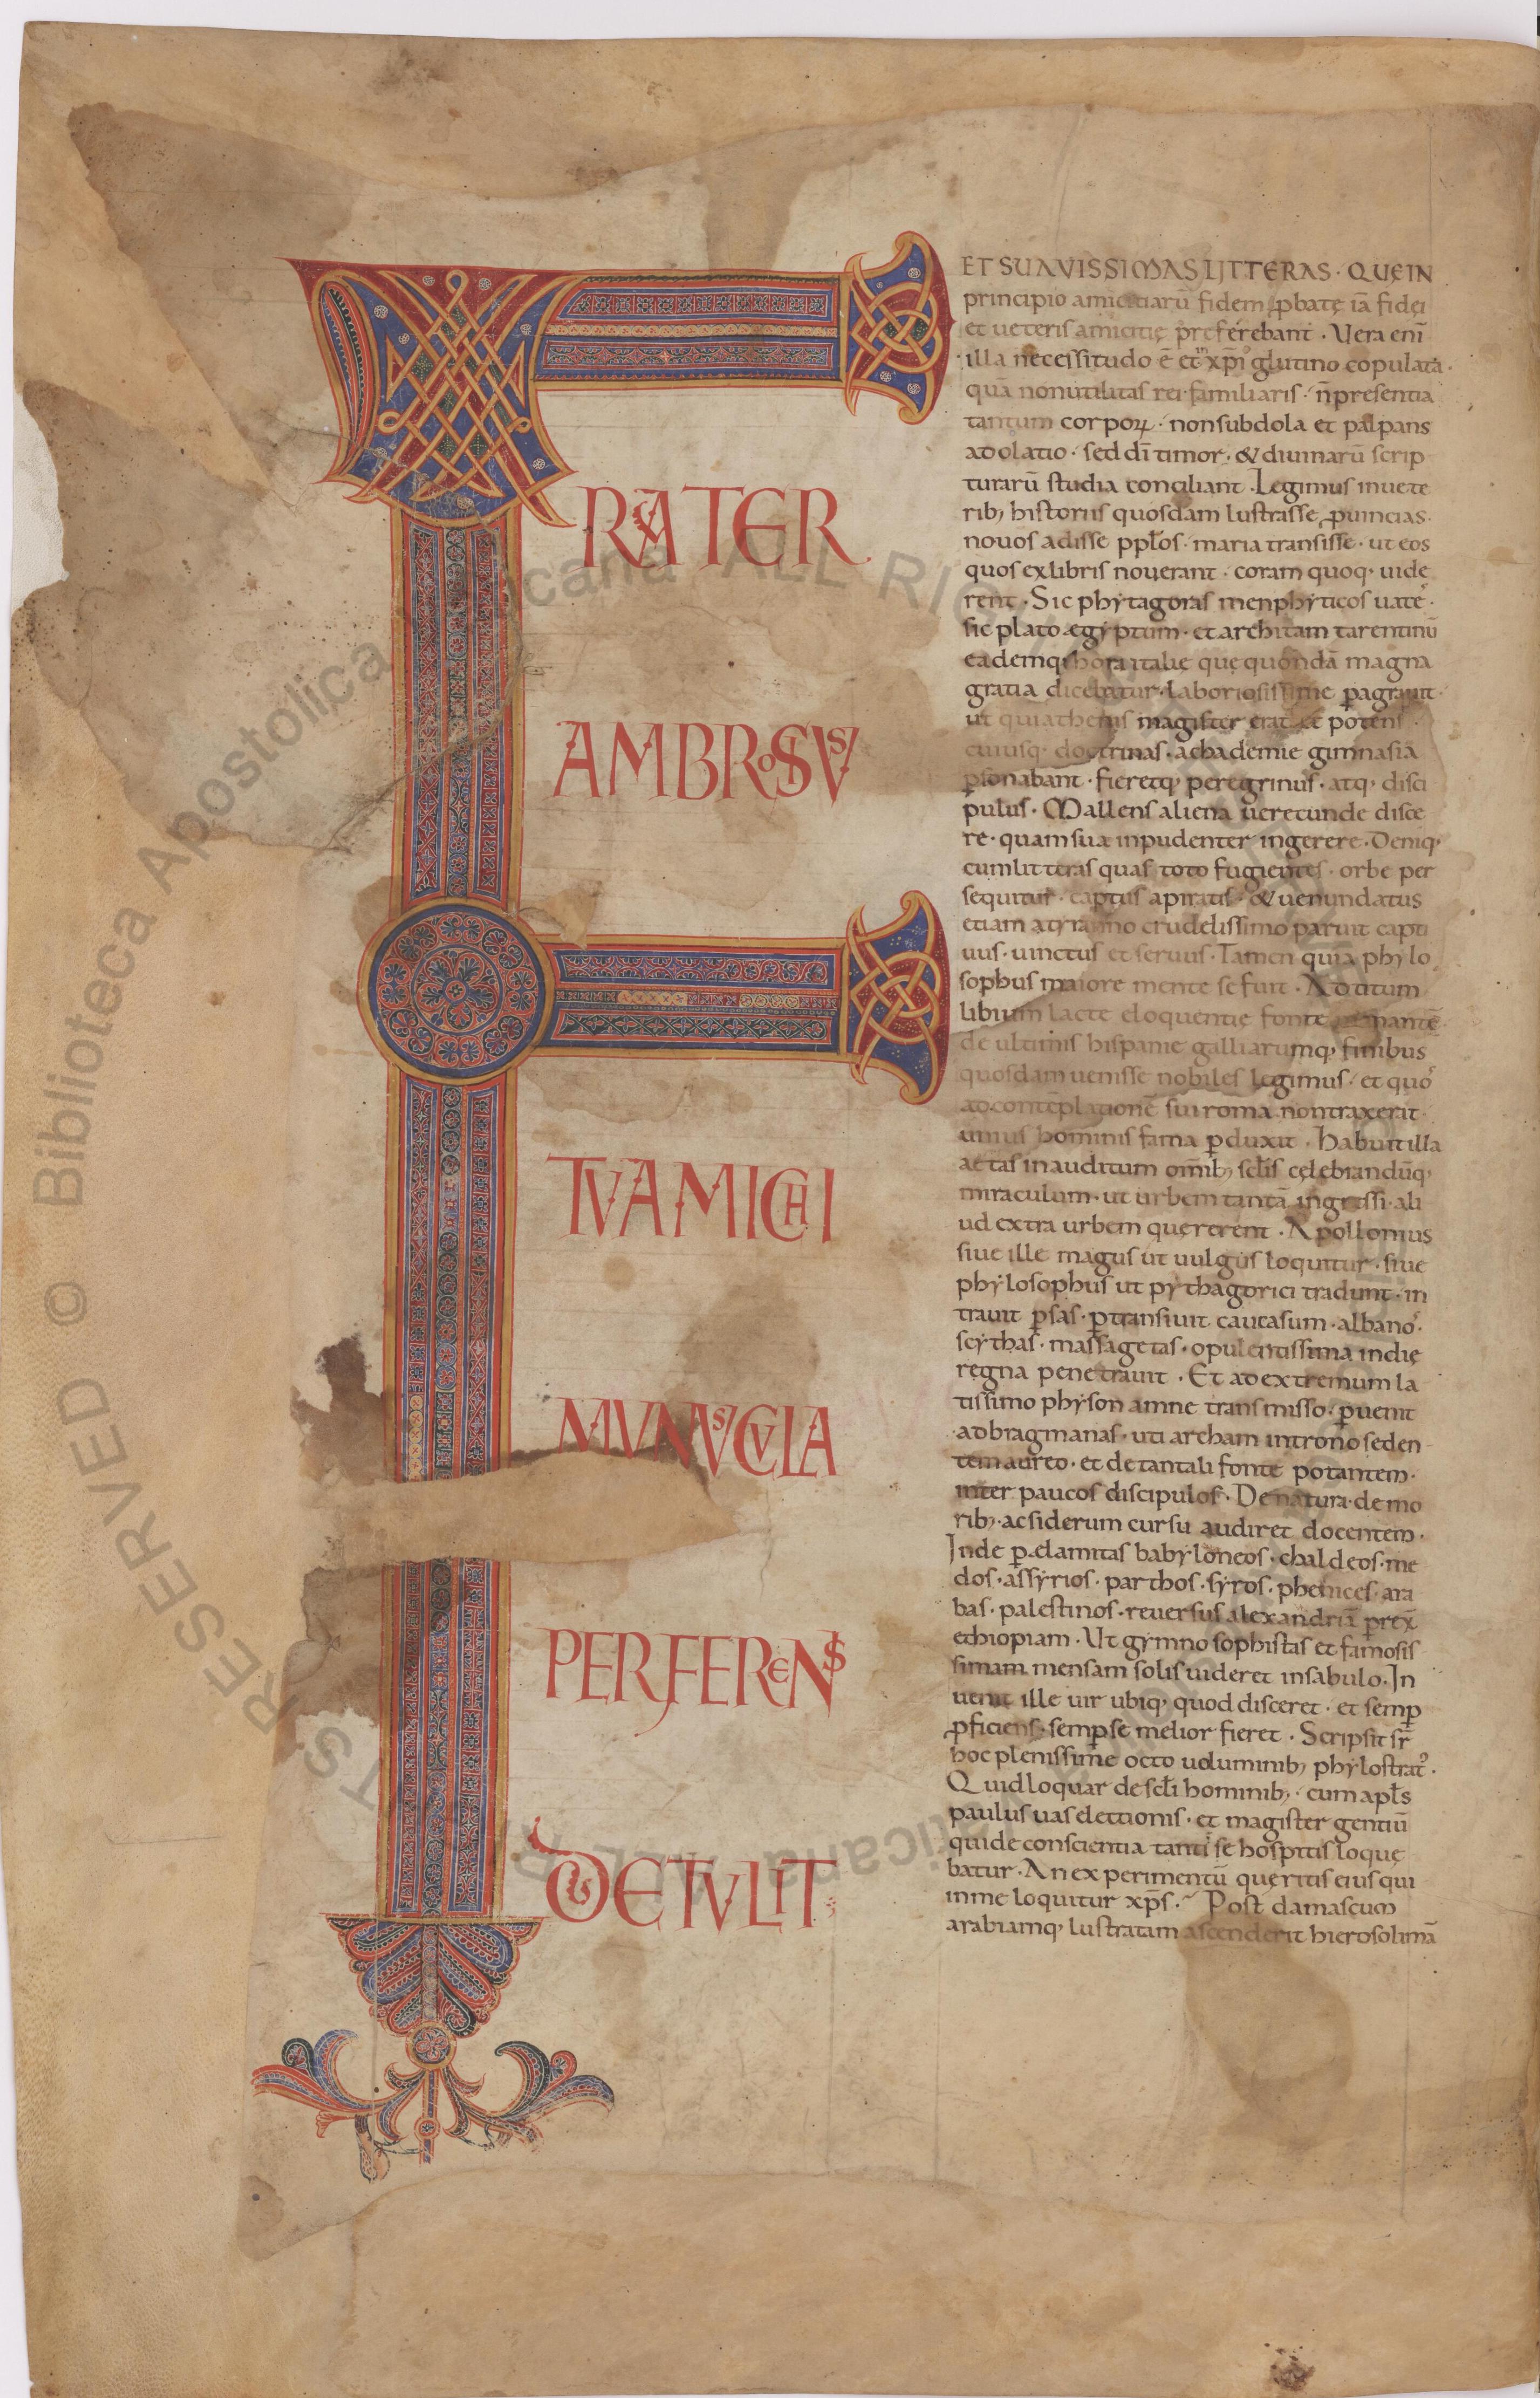 FRATER
AMBROSIVS
TVA MICHI
MVNVSCVLA
PERFERENS
DETVLIT
ET SUAVISSIMAS LITTERAS · QUE IN
principio amicitiarū fidem ꝓbatę iā fidei
et ueteris amicitię preferebant · Vera enī
illa necessitudo ē et xp̄i glutino copulata ·
quā non utilitas rei familiaris · n̄ presentia
tantum corpoꝝ · non subdola et palpans
adolatio · sed dī timor · & diuinarū scrip
turarū studia conciliant · Legimus in uete
rib; historiis quosdam lustrasse ꝓuincias ·
nouos adisse ppl̄os · maria transisse · ut eos
quos ex libris nouerant · coram quoq; uide
rent · Sic phytagoras menphyticos uates ·
sic plato egyptum · et architam tarentinū
eademq; hora italię quę quondā magna
gratia dicebatur · laboriosissime ꝑagrauit ·
ut qui athenis magister erat et potens ·
cuiusq; doctrinas · achademie gimnasia
ꝑsonabant · fieretq; peregrinus · atq; disci
pulus · Mallens aliena uerecunde disce
re · quam sua inpudenter ingerere · Deniq;
cum litteras quas toto fugientes · orbe per
sequitur · captus a piratis · & uenundatus
etiam a tyranno crudelissimo paruit capti
uus · uinctus et seruus · Tamen quia phylo
sophus maiore mente se fuit · Ad titum
libium lacte eloquentię fonte manantē
de ultimis hispanie galliarumq; finibus
quosdam uenisse nobiles legimus · et quos
ad contēplationē sui roma non traxerat ·
unius hominis fama ꝑduxit · Habuit illa
aetas inauditum om̄ib; scl̄is cęlebrandūq;
miraculum · ut urbem tantā ingressi · ali
ud extra urbem quererent · Apollonius
siue ille magus ut uulgus loquitur · siue
phylosophus ut pythagorici tradunt · in
trauit ꝑsas · ꝑtransiuit caucasum · albanos ·
scythas · massagetas · opulentissima indię
regna penetrauit · Et ad extremum la
tissimo physon amne transmisso · ꝑuenit
ad bragmanas · uti archam in trono seden
tem aureo · et de tantali fonte potantem ·
inter paucos discipulos · De natura · de mo
rib; · ac siderum cursu audiret docentem ·
Inde ꝑ elamitas babyloneos · chaldeos · me
dos · assyrios · parthos · syros · phenices · ara
bas · palestinos · reuersus alexandriā ꝑrex̄
ethiopiam · Ut gymnosophistas et famosis
simam mensam solis uideret in sabulo · In
uenit ille uir ubiq; quod disceret · et semꝑ
ꝓficiens · semꝑ se melior fieret · Scripsit sr̄
hoc plenissime octo uoluminib; phylostratus ·
Quid loquar de scl̄i hominib; · cum apl̄s
paulus uas electionis · et magister gentiū
qui de conscientia tanti se hospitis loque
batur · An experimentū queritis eius qui
in me loquitur xp̄s · Post damascum
arabiamq; lustratam ascenderit hierosolimā
© Biblioteca Apostolica Vaticana ALL RIGHTS RESERVED